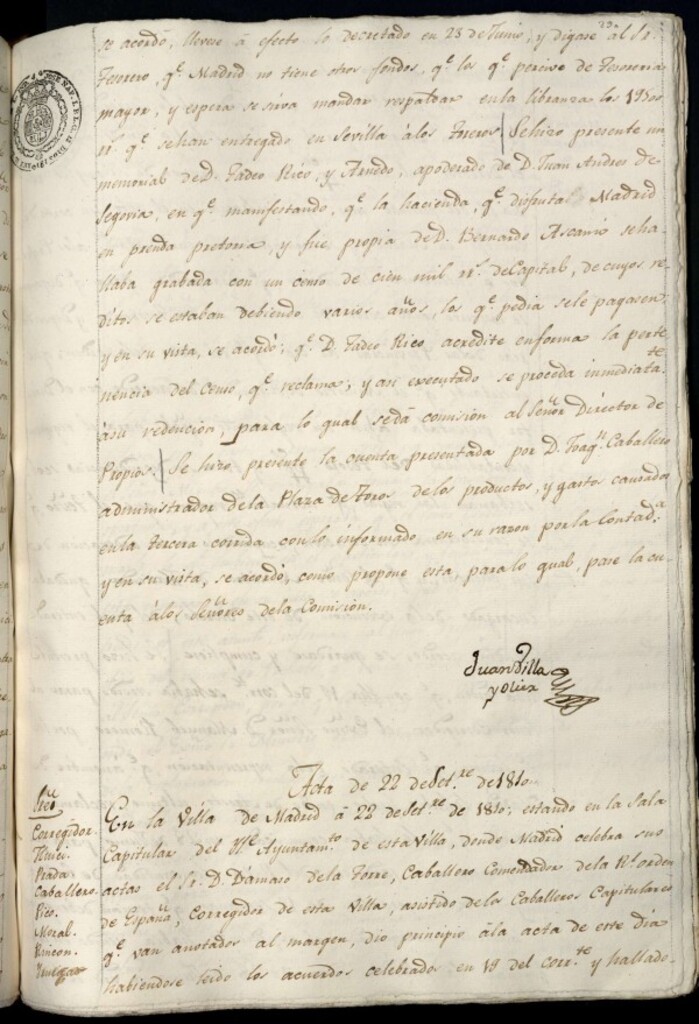 se acordó, lleve á efecto lo decretado en 23 de Junio, y digase al Sr.
Tesorero, qe. Madrid no tiene otros fondos, qe. los qe. percive de Tesoreria
mayor, y espera se sirva mandar respaldar en la libranza los 19500
rs. qe. se han entregado en Sevilla á los Toreros | Se hizo presente un
memorial de D. Tadeo Rico, y Arnedo, apoderado de D. Juan Andres de
Segovia, en qe. manifestando, qe. la hacienda, qe. disfruta Madrid
en prenda pretoria, y fue propia de D. Bernardo Ascanio se ha-
llaba grabada con un censo de cien mil rs. de Capital, de cuyos re-
ditos se estaban debiendo varios años, los qe. pedia se le pagasen;
y en su vista, se acordó; qe. D. Tadeo Rico acredite en forma la perte
nencia del Censo, qe. reclama; y asi executado se proceda inmediatate.
á su redencion, para lo qual se dá comision al Señor Director de
Propios. | Se hizo presente la cuenta presentada por D. Joaqn. Caballero
administrador de la Plaza de Toros de los productos, y gastos causados
en la tercera corrida con lo informado en su razon por la Contada.
y en su vista, se acordó, como propone esta, para lo qual, pase la cu-
enta á los Señores de la Comision.
Juan Villa
y Olier
Acta de 22 de Setre. de 1810.
Sres.
Corregidor.
Prada.
Caballero.
Rico.
Moral.
Rincon.
En la Villa de Madrid á 22 de Setre. de 1810; estando en la Sala
Capitular del Yltre Ayuntamto. de esta Villa, donde Madrid celebra sus
actas el Sr. D. Dámaso de la Torre, Caballero Comendador de la Rl. orden
de España, Corregidor de esta Villa, asistido de los Caballeros Capitulares
qe. van anotados al margen, dio principio á la acta de este dia
habiendose leido los acuerdos celebrados en 19 del corrte. y hallado-